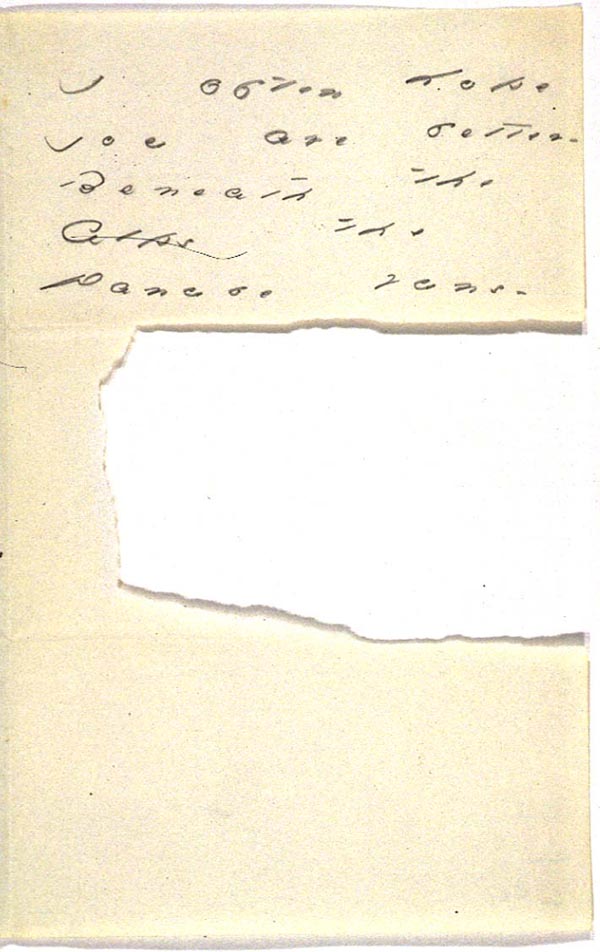 I often hope
you are better.
Beneath the
Alps the
Danube runs.